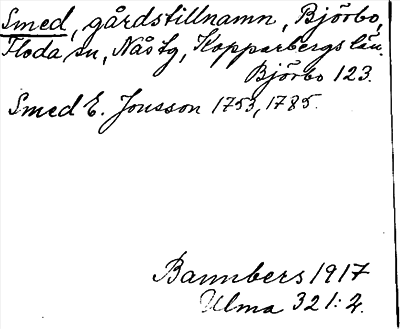 Smed, gårdstillnamn, Björbo,
Floda sn, Nås tg, Kopparbergs län.
Björbo 123.
Smed E. Jonsson 1753, 1785.
Bannbers 1917
Ulma 321:4.